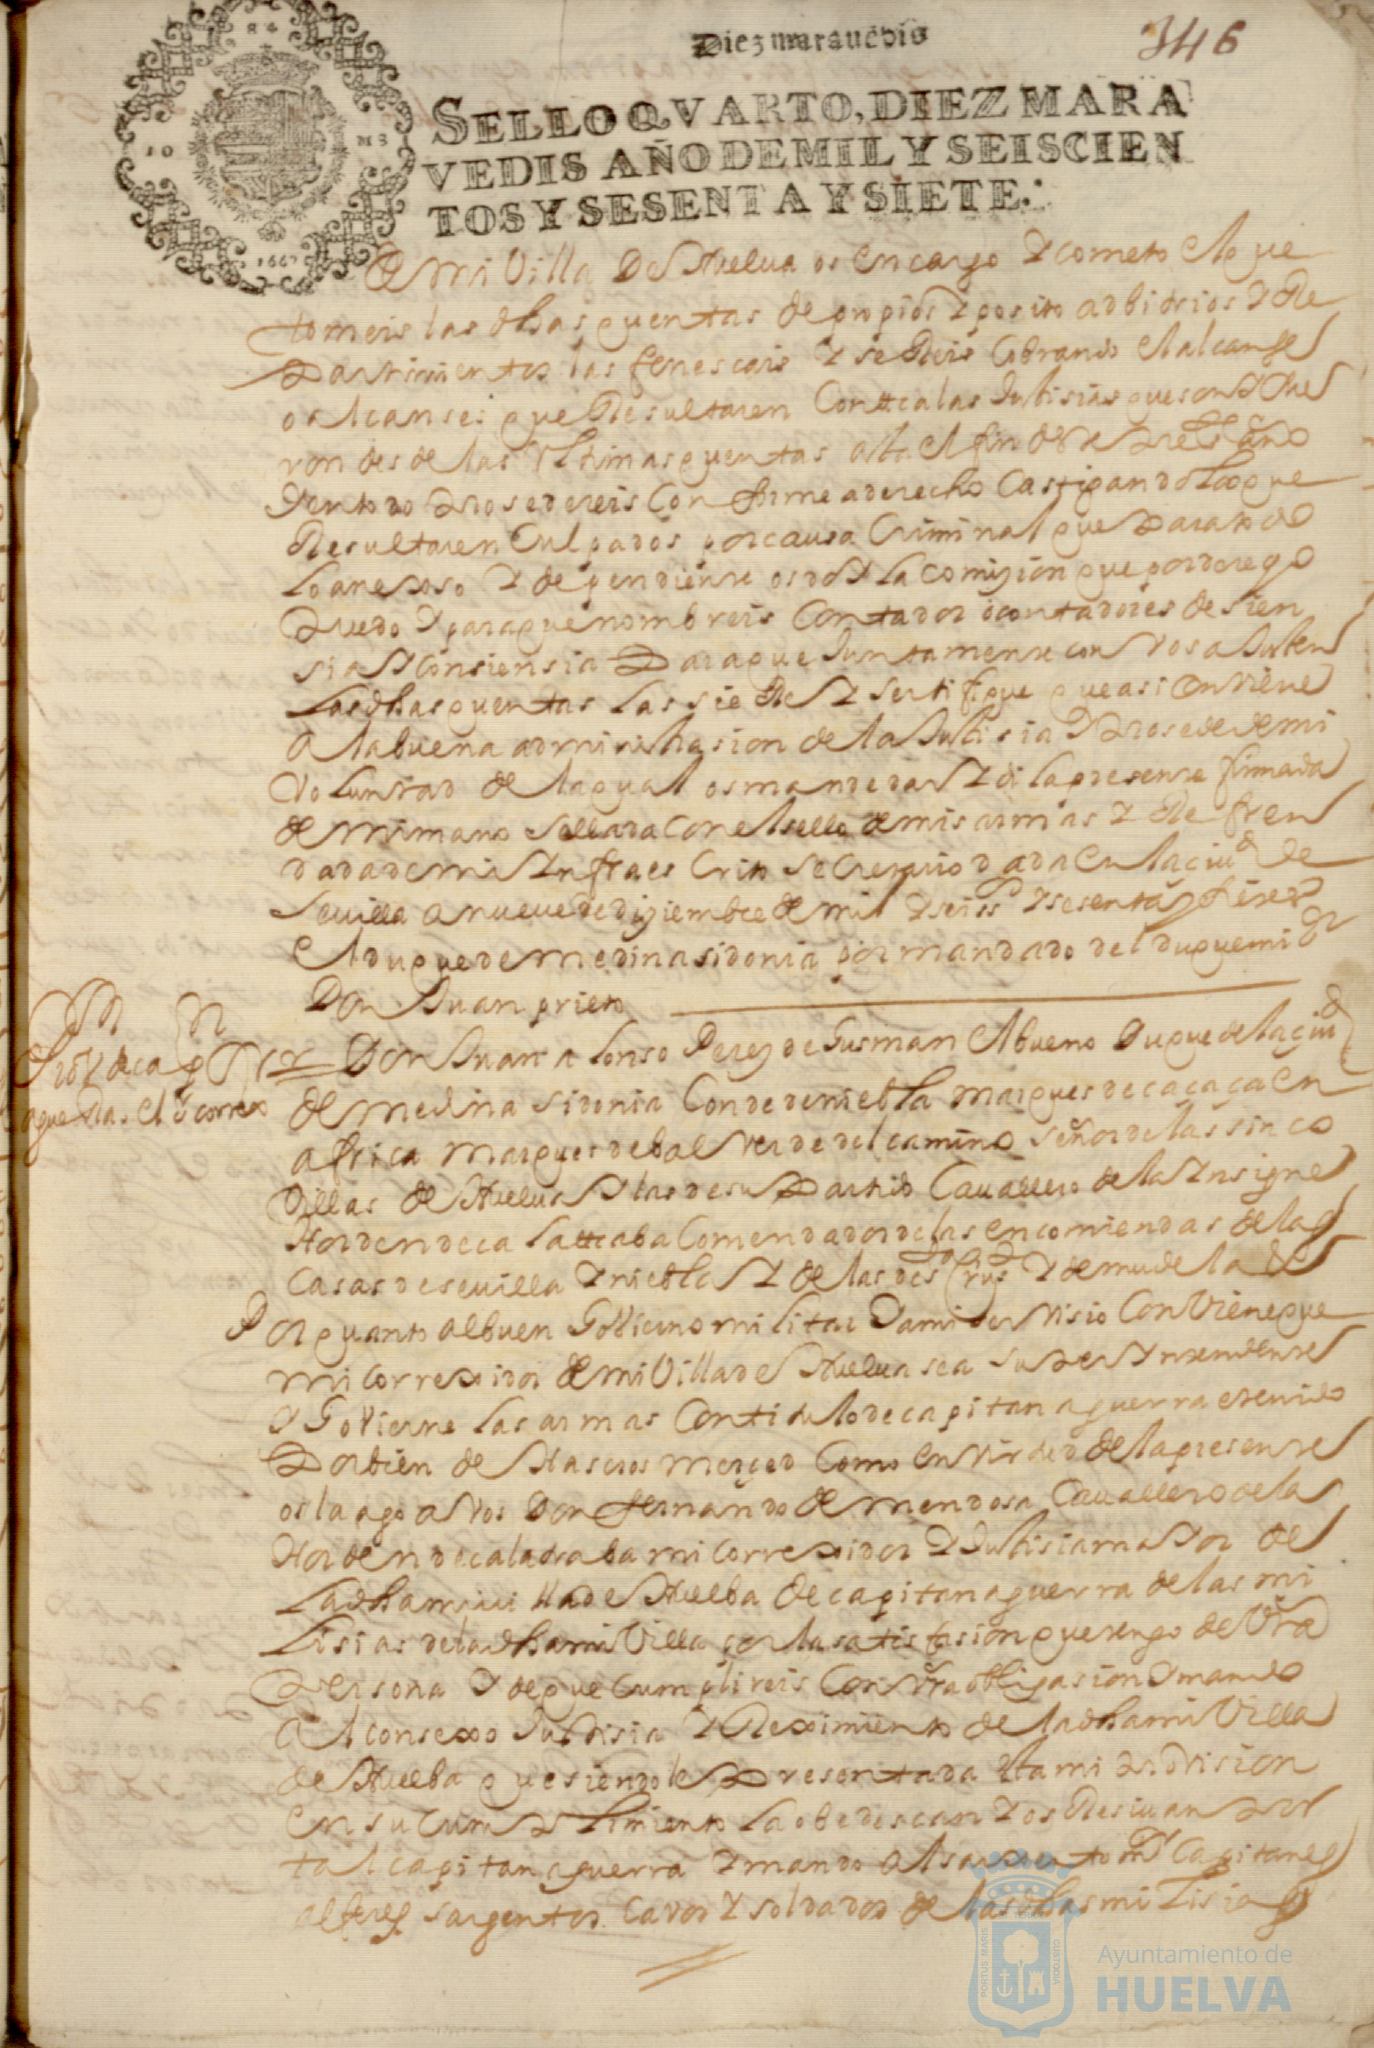 Diez marauedis
346
SELLO QVARTO, DIEZ MARA
VEDIS AÑO DE MIL Y SEISCIEN
TOS Y SESENTA Y SIETE.
1667
De mi Villa De Huelua os encargo Y cometo el que
tomeis las dhas quentas de propios Y posito adbitrios Y Re
partimientos las fenescais Y se Reis Cobrando el alcanse
o alcanses que Resultaren Contra las Justisias que
ron desde las Vltimas quentas asta el fin de este presste año
Y en todo prosedereis Conforme a derecho Castigando los que
Resultaren Culpados por causa Criminal que para todo
lo anexso Y dependiente os doy la comizion que por dere
puedo Y para que nombreis Contador o contadores de sien
sia Y Consiensia Para que Juntamente con Vos ajusten
las dhas quentas las Y sertifique que asi Conviene
a la buena administrasion de la Justisia Y prosede de mi
Voluntad de la qual os mande dar Y di la presente firmada
de mi mano Sellada Con el sello de mis armas Y Refren
dada de mi Ynfraes Crito Secretario dada En la ciud de
Seuilla a nueue de diziembre de mil Y seisss Y sesenta y
El duque de Medinasidonia por mandado del duque mi sr
Don Juan prieto
Don Juan alonso Perez de Gusman El bueno Duque de la ciud
de Medina Sidonia Conde de niebla Marques de caçaça En
africa Marques de balverde del camino Señor de las sinco
Villas de Huelua Y las de su Partido Cauallero de la Ynsigne
Horden de calattraba Comendador de las encomiendas de las
Casas de seuilla Y niebla Y de las dos Y de mudela de
Por quanto al buen Govierno militar Y a mi servisio Conviene que
mi correxidor de mi Villa de Huelua sea Superyntendente
Y Govierne las armas Con titulo de capitan a guerra e tenido
Por bien de Haseros Merçed Como En virtud de la presente
os la ago a Vos Don fernando de Mendosa Cauallero de la
Horden de calatraba mi Correxidor Y Justisia mayor de
la dha mi villa de Huelba de capitan a guerra de las mi
lisias de la dha mi Villa por la satisfasion que tengo de Vra
Persona Y de que Cumplireis Con Vra obligasion Y mando
Al Consexo Justisia Y Reximiento de la dha mi Villa
de Huelba que siendole Presentada Esta mi Provision
En su Cumplimiento la obedescan Y os Resiuan Por
tal capitan a guerra Y mando al sarxento mr Capitanes
alferes sargentos Cavos Y soldados de las dhas milisias
Ayuntamiento de
HUELVA
PORTUS MARIS
CUSTODIA